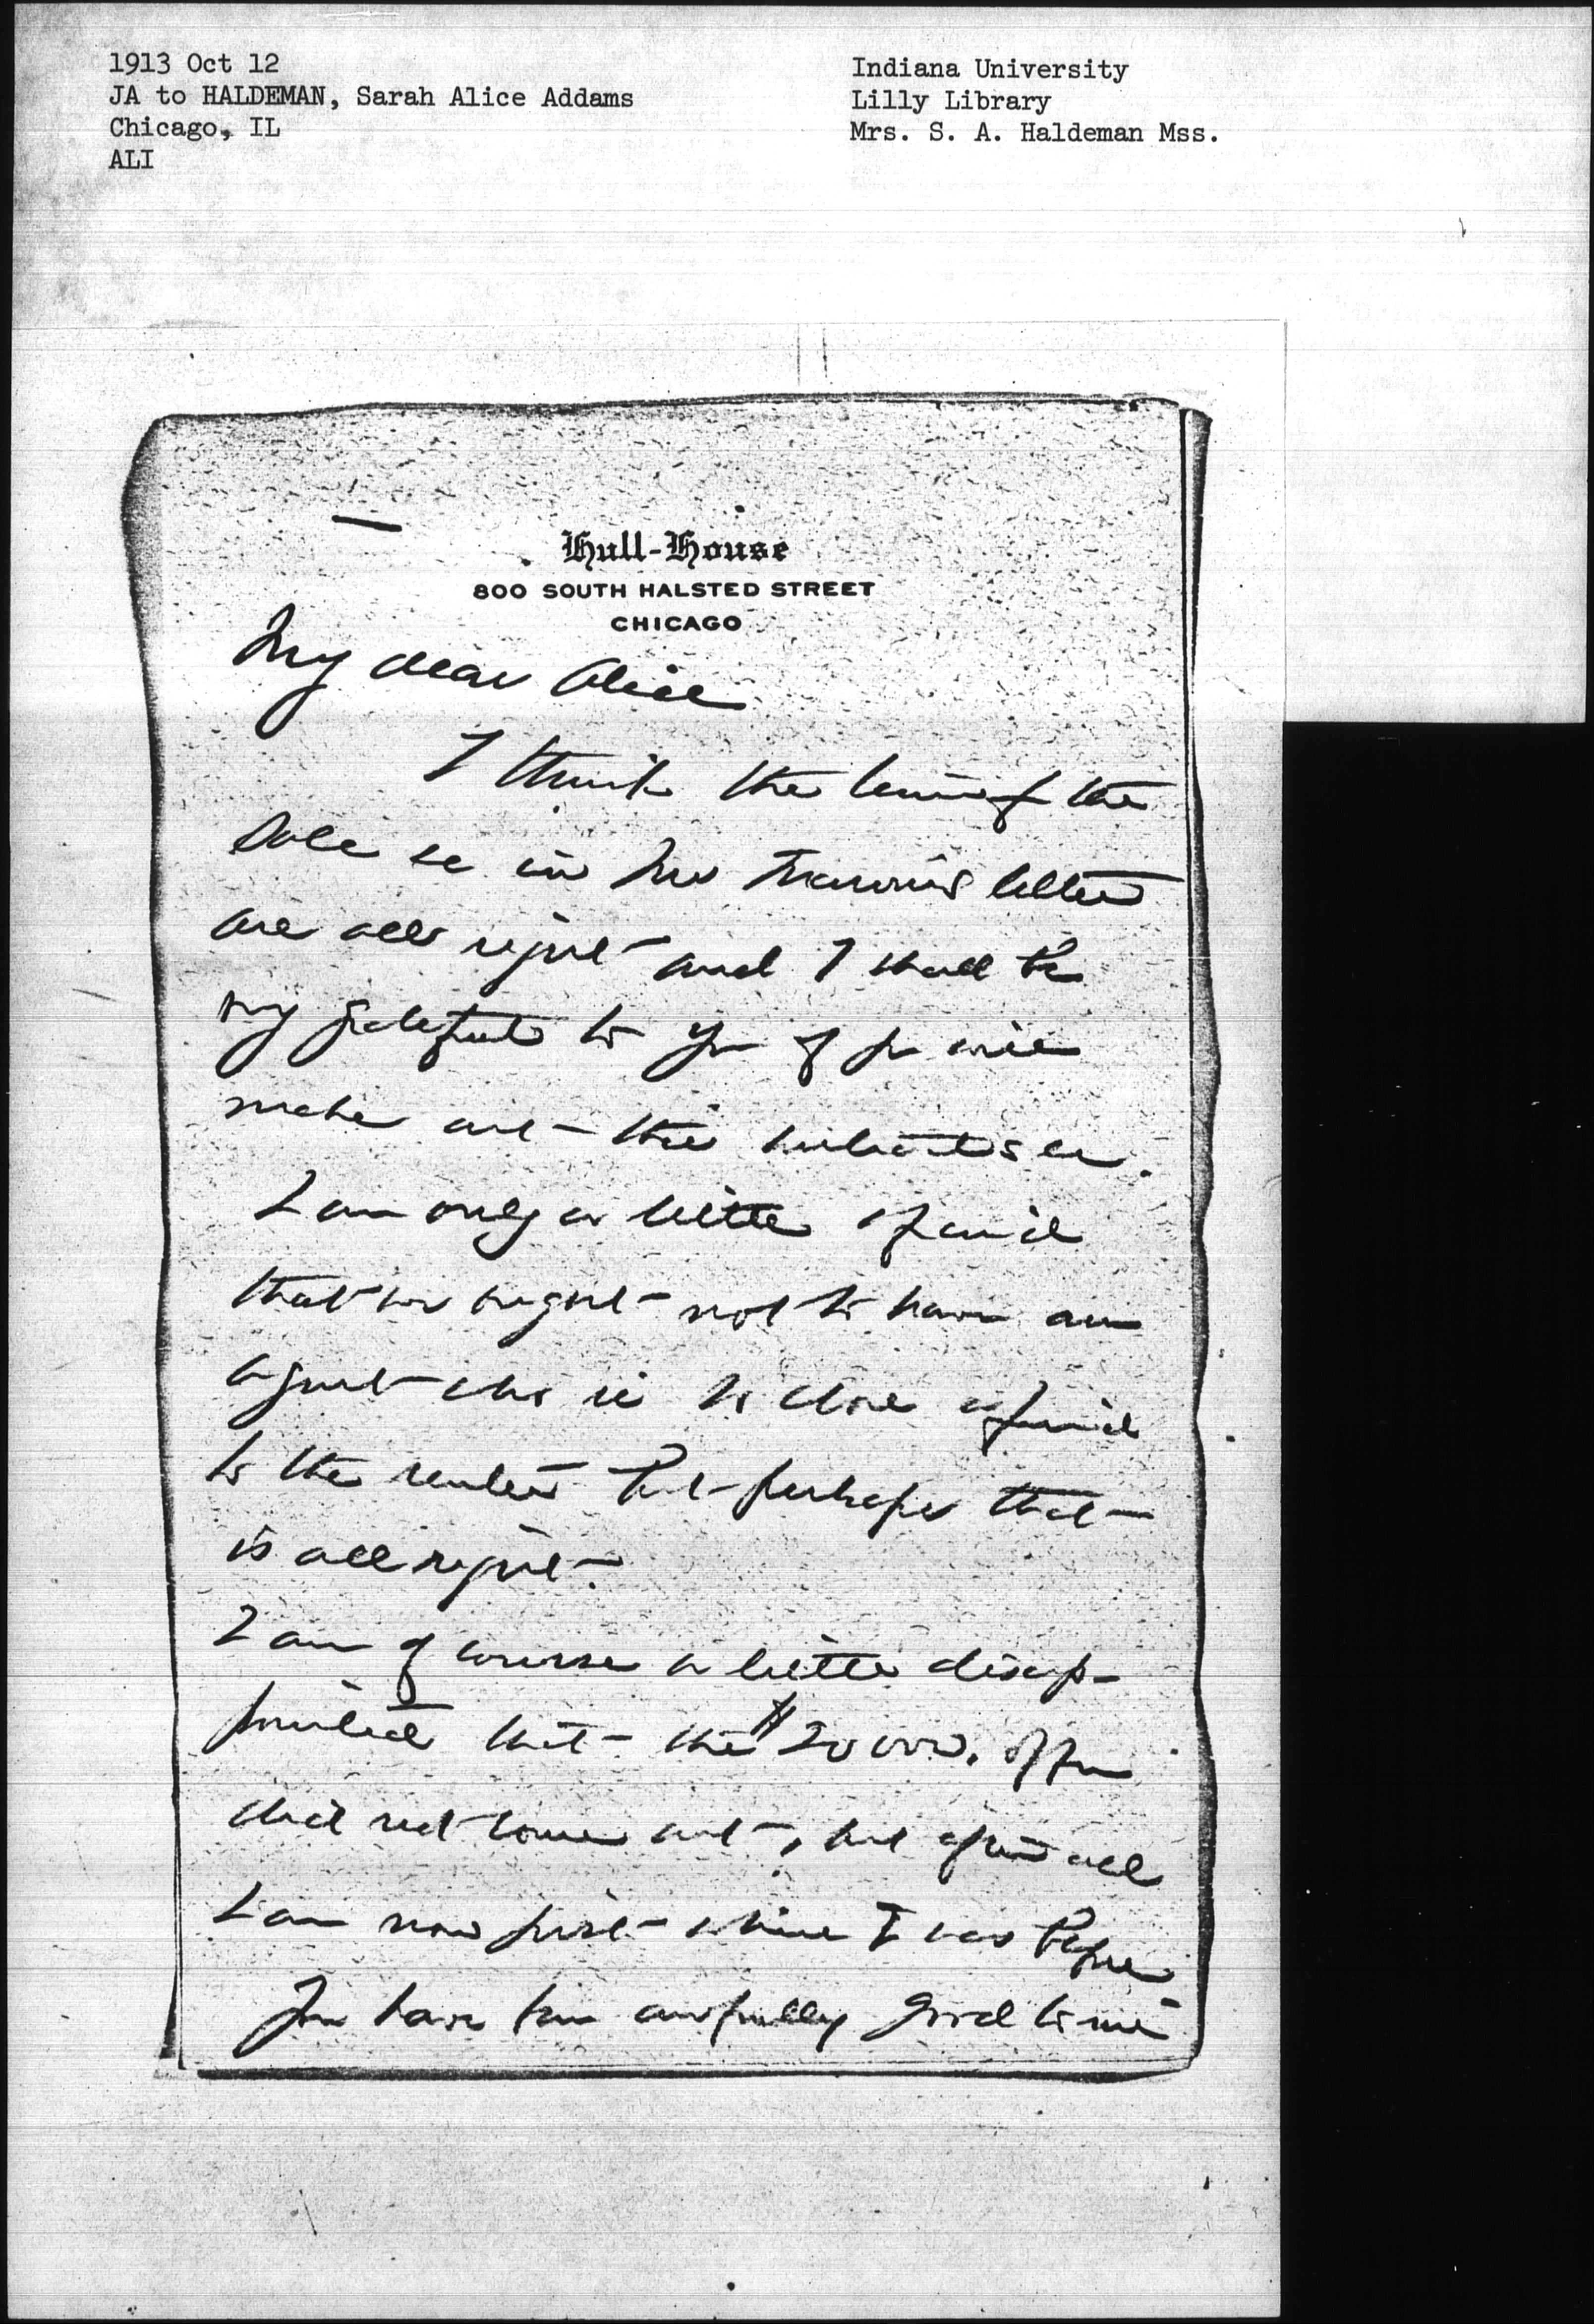 1913 Oct 12
JA to HALDEMAN, Sarah Alice Addams
Chicago, IL
ALI
Indiana University
Lilly Library
Mrs. S. A. Haldeman Mss.
Hull-House
800 SOUTH HALSTED STREET
CHICAGO
My dear Alice
I think the terms of the
sale as in letter
are all right and I shall be
very grateful to you if you will
make out the
I am only a little afraid
that we ought not to have an
agent who is so close a friend
to the renter but perhaps that
is all right.
I am of course a little disap-
pointed that the $20000. offer
did not come out, but after all
I am now just where I was before
You have been awfully good to me